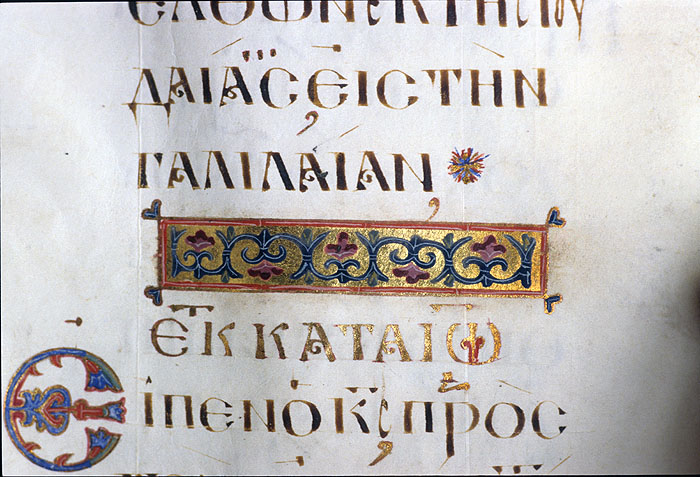 ΕΛΘΩΝ ΕΚ ΤΗϹ ΙΟΥ
ΔΑΙΑϹ ΕΙϹ ΤΗΝ
ΓΑΛΙΛΑΙΑΝ
ΕΚ Κ ΚΑΤΑ ΙΩ
ΕΙΠΕΝ Ο ΚϹ ΠΡΟϹ